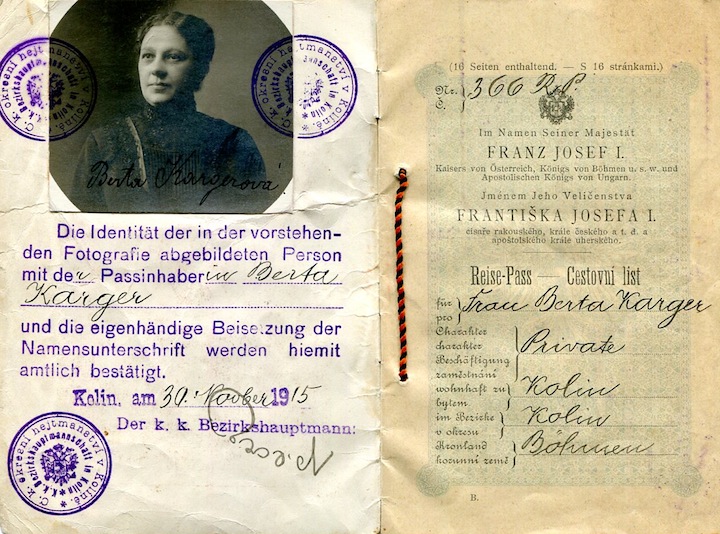 C. k. okresní hejtmanství v Kolíně.
K. k. Bezirkshauptmannschaft in Kolin
Berta Kargerová
Die Identität der in der vorstehen-
den Fotografie abgebildeten Person
mit der Passinhaberin Berta
Karger
und die eigenhändige Beisetzung der
Namensunterschrift werden hiemit
amtlich bestätigt.
Kolin, am 30. November 1915
Der k. k. Bezirkshauptmann:
C. k. okresní hejtmanství v Kolíně.
K. k. Bezirkshauptmannschaft in Kolin
(16 Seiten enthaltend. — S 16 stránkami.)
Nr. 366 R.P.
Č.
Im Namen Seiner Majestät
FRANZ JOSEF I.
Kaisers von Österreich, Königs von Böhmen u. s. w. und
Apostolischen Königs von Ungarn.
Jménem Jeho Veličenstva
FRANTIŠKA JOSEFA I.
císaře rakouského, krále českého a t. d. a
apoštolského krále uherského.
Reise-Pass — Cestovní list
für Frau Berta Karger
pro
Charakter
charakter
Beschäftigung Private
zaměstnání
wohnhaft zu Kolin
bytem
im Bezirke Kolin
v okresu
Kronland Böhmen
korunní země
B.